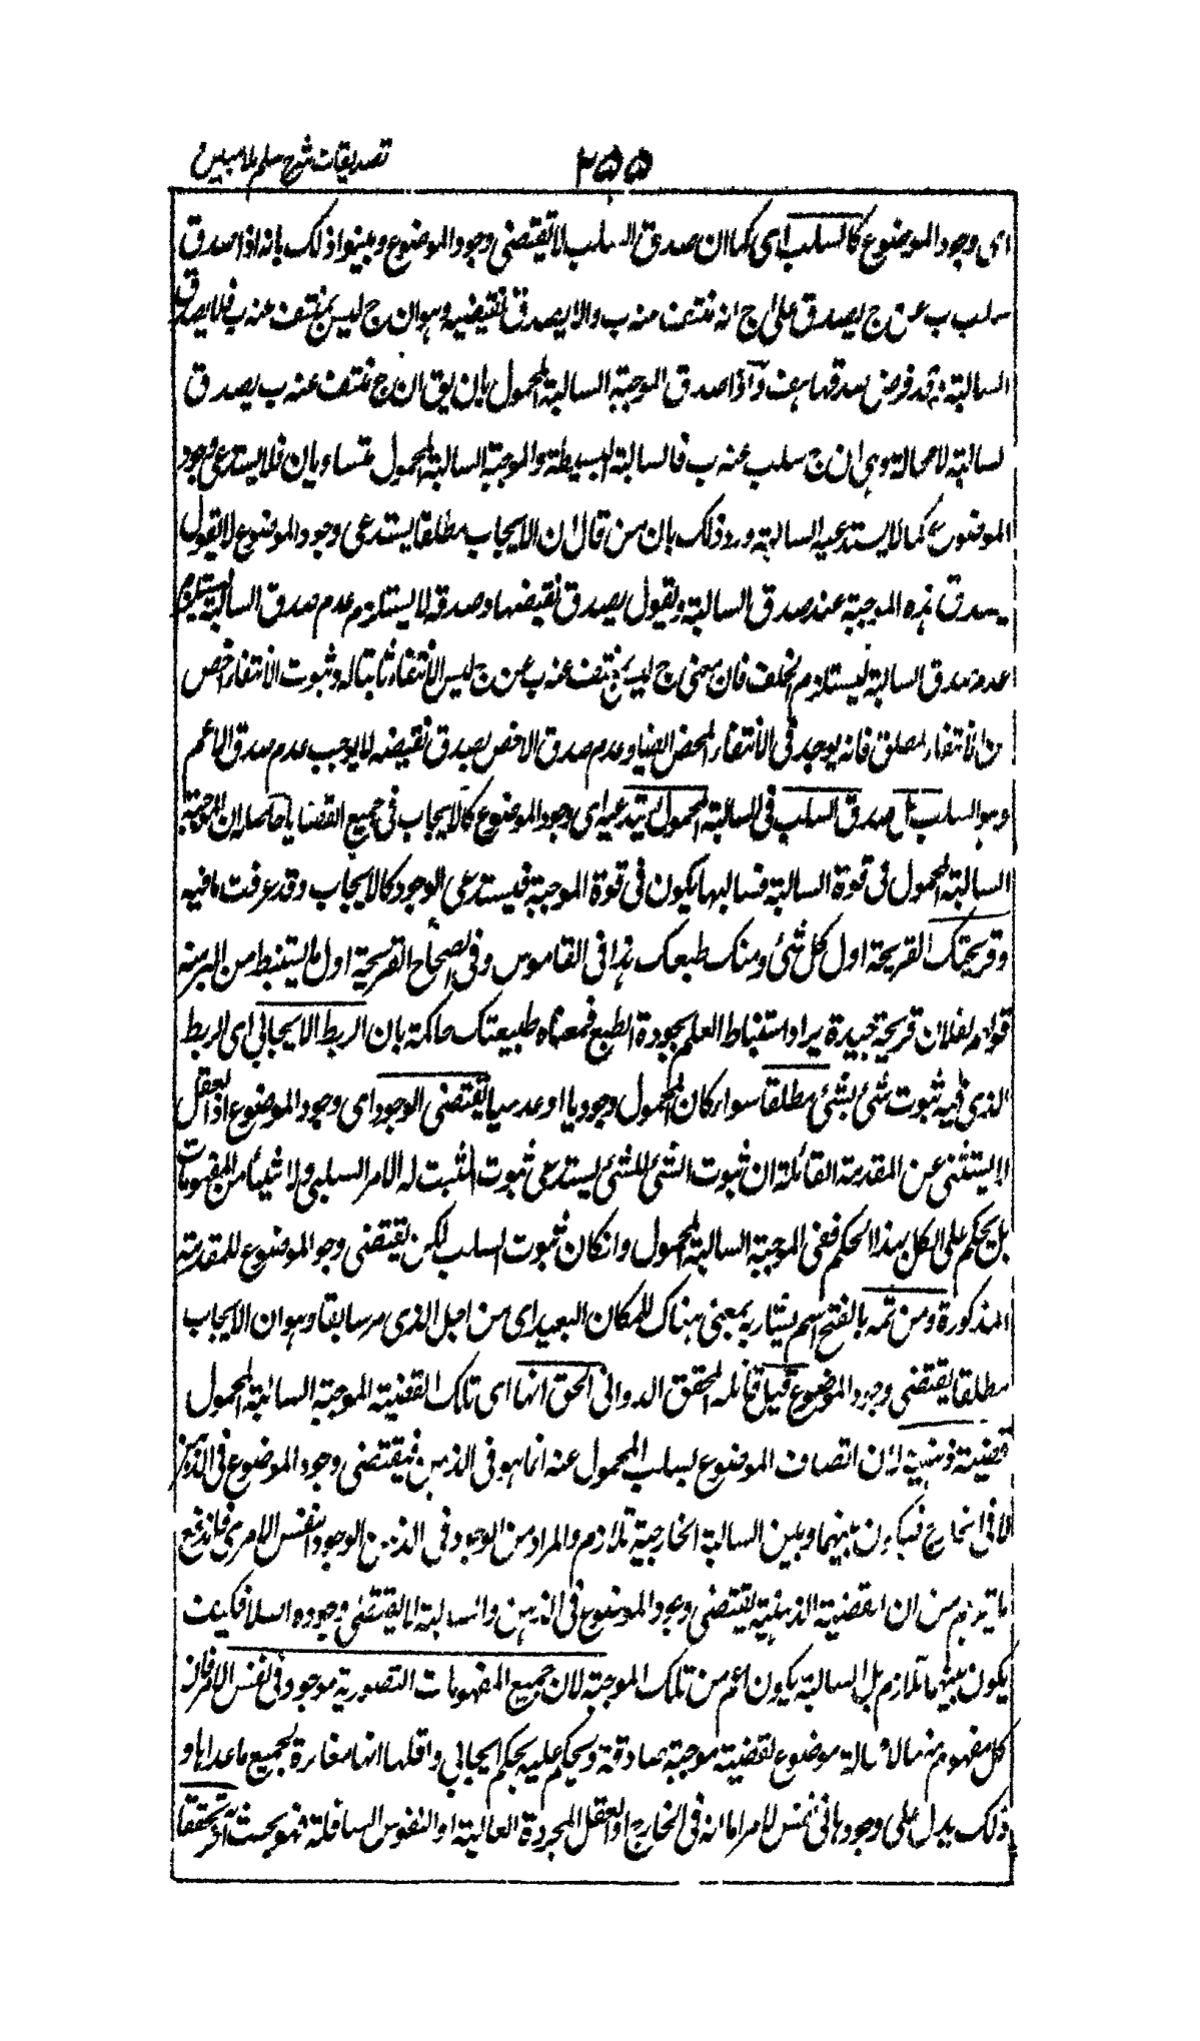 تصديقات شرح سلم ملا مبين
٢٥٥
اى وجود الموضوع كالسلب اى كما ان صدق السلب لا تقتضى وجود الموضوع وبينوا ذلك بانه اذا صدق
سلب ب عن ج يصدق على ج انه منتف عنه ب والا يصدق نقيضيه وهو ان ج ليس بمنتف عنه ب فلا يصدق
السالبة وقد فرض صدقها هف واذا صدق الموجبة السالبة المحمول بان يق ان ج منتف عنه ب يصدق
لسالبة لا محالة وهى ان ج سلب عنه ب فالسالبة البسيطة والموجبة السالبة المحمول متساويان فلا يستدعى وجود
الموضوع كما لا يستدعيه السالبة ورد ذلك بان من قال ان الايجاب مطلقا يستدعى وجود الموضوع لا يقول
يصدق هذه الموجبة عند صدق السالبة ويقول يصدق نقيضها وصدقه لا يستلزم عدم صدق السالبة
عدم صدق السالبة ليستلزم الخلف فان معنى ج ليس بمنتف عنه ب عن ج ليس الانتفاء ثابتا له وثبوت الانتفاء اخص
من الانتفاء المطلق فانه يوجد فى الانتفاء المحض ايضا وعدم صدق الاخص بصدق نقيضه لا يوجب عدم صدق الاعم
وهو السلب بل صدق السلب فى السالبة المحمول يستدعيه اى وجود الموضوع كالايجاب فى جميع القضايا حاصله ان الموجبة
السالبة المحمول فى قوة السالبة فسالبها يكون فى قوة الموجبة فيستدعى الوجود كالايجاب وقد عرفت ما فيه
وقريحتك القريحة اول كل شئ ومنك طبعك هذا فى القاموس وفى الصحاح القريحة اول ما يستنبط من البئر منه
قولهم لفلان قريحة جيدة يراد استنباط العلم بجودة الطبع فمعناه طبيعتك حاكمة بان الربط الايجابى اى الربط
الذى فيه ثبوت شئ لشئ مطلقا سواء كان المحمول وجوديا او عدميا يقتضى الوجود اى وجود الموضوع اذ العقل
لا يستثنى عن المقدمة القائلة ان ثبوت الشئ للشئ يستدعى ثبوت المثبت له الامر السلبى ولا شيئا من المفهومات
بل يحكم على الكل بهذا الحكم ففى الموجبة السالبة المحمول وانكان ثبوت السلب لكن يقتضى وجود الموضوع للمقدمة
المذكورة ومن ثمه بالفتح اسم يشار به بمعنى هناك للمكان البعيد اى من اجل الذى مر سابقا وهو ان الايجاب
مطلقا يقتضى وجود الموضوع قيل قائله المحقق الدوانى الحق انها اى تلك القضية الموجبة السالبة المحمول
قضية ذهنية لان اتصاف الموضوع بسلب المحمول عنه انما هو فى الذهن فيقتضى وجود الموضوع فى الذهن
لا فى الخارج فيكون بينهما وبين السالبة الخارجية تلازم والمراد من الوجود فى الذهن الوجود النفس الامرى فاندفع
ما يتوهم من ان القضية الذهنية يقتضى وجود الموضوع فى الذهن والسالبة لا يقتضى وجوده اصلا فكيف
يكون بينهما تلازم بل السالبة يكون اعم من تلك الموجبة لان جميع المفهومات التصورية موجود فى نفس الامر لان
كل مفهوم منها لا محالة موضوع لقضية موجبة صادقة ويحكم عليه بحكم ايجابى واقلها انها مغايرة لجميع ما عداها و
ذلك يدل على وجودها فى نفس الامر اما انه فى الخارج او العقل المجردة العالية او النفوس السافلة فهو بحث آخر تحققا